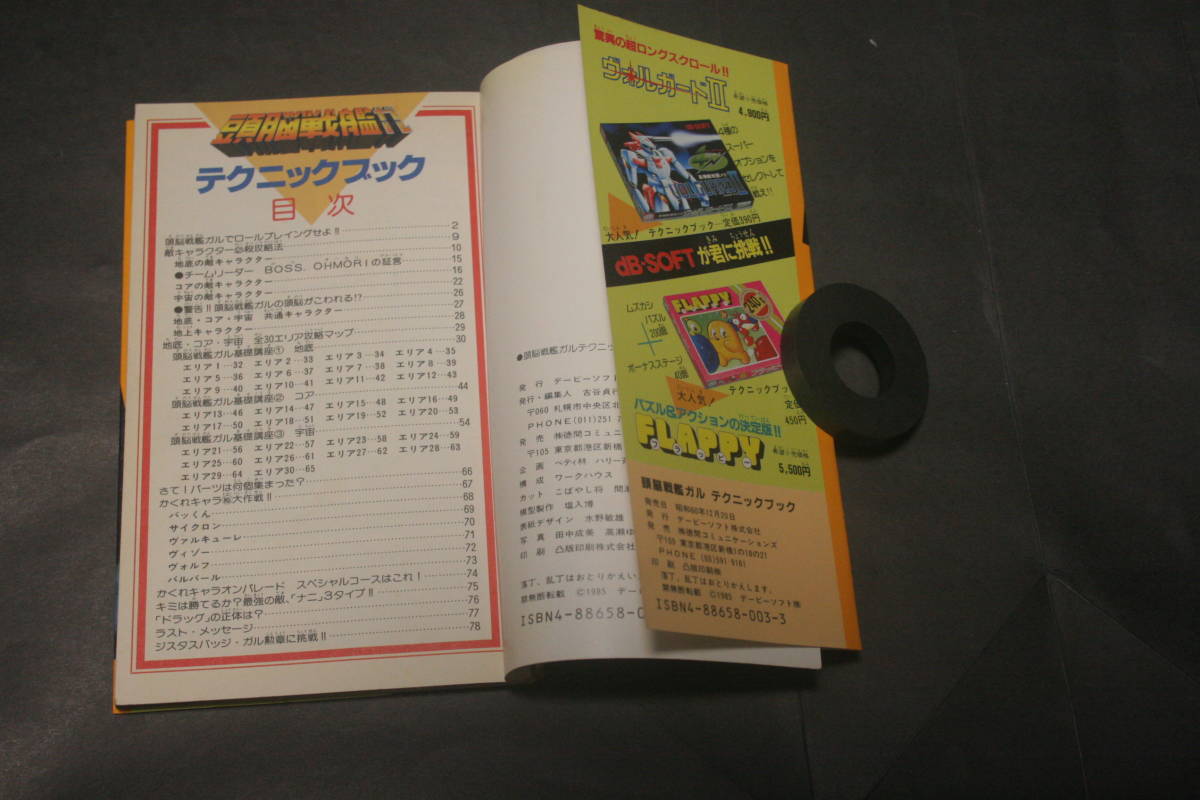 頭脳戦艦ガル
テクニックブック
目次
頭脳戦艦ガルでロールプレイングせよ!!……2
敵キャラクター必殺攻略法……9
地底の敵キャラクター……10
●チームリーダー BOSS. OHMORIの証言……15
コアの敵キャラクター……16
宇宙の敵キャラクター……22
●警告!!頭脳戦艦ガルの頭脳がこわれる!?……26
地底・コア・宇宙 共通キャラクター……27
地上キャラクター……28
地底・コア・宇宙 全30エリア攻略マップ……29
頭脳戦艦ガル基礎講座① 地底……30
エリア1…32 エリア2…33 エリア3…34 エリア4…35
エリア5…36 エリア6…37 エリア7…38 エリア8…39
エリア9…40 エリア10…41 エリア11…42 エリア12…43
頭脳戦艦ガル基礎講座② コア……44
エリア13…46 エリア14…47 エリア15…48 エリア16…49
エリア17…50 エリア18…51 エリア19…52 エリア20…53
頭脳戦艦ガル基礎講座③ 宇宙……54
エリア21…56 エリア22…57 エリア23…58 エリア24…59
エリア25…60 エリア26…61 エリア27…62 エリア28…63
エリア29…64 エリア30…65
さて!パーツは何個集まった?……66
かくれキャラ㊙大作戦!!……67
パッくん……68
サイクロン……69
ヴァルキューレ……70
ヴィゾー……71
ヴォルフ……72
バルバール……73
かくれキャラオンパレード スペシャルコースはこれ!……74
キミは勝てるか?最強の敵、「ナニ」3タイプ!!……75
「ドラッグ」の正体は?……76
ラスト・メッセージ……77
ジスタスバッジ・ガル勲章に挑戦!!……78
●頭脳戦艦ガルテクニッ
発行 デービーソフト
発行・編集人 古谷貞行
〒060 札幌市中央区北
PHONE(011)251
発売 ㈱徳間コミュニ
〒105 東京都港区新橋
企画 ペティ林 ハリー
構成 ワークハウス
カット こばやし将 間瀬
模型製作 塩入博
表紙デザイン 水野敏雄
写真 田中成美 高瀬ゆ
印刷 凸版印刷株式会社
落丁、乱丁はおとりかえい
禁無断転載 ©1985 デービ
ISBN4-88658-0
驚異の超ロングスクロール!!
ヴォルガードII
希望小売価格
4,900円
dB-SOFT
VOLGUARD II
4種の
スーパー
オプションを
セレクトして
戦え!!
大人気! テクニックブック…定価390円
dB-SOFTが君に挑戦!!
きみ ちょうせん
ムズカシ
パズル
200面
+
ボーナスステージ
40面
FLAPPY
大人気!
テクニックブック
定価
450円
パズル&アクションの決定版!!
FLAPPY
フラッピー
希望小売価格
5,500円
頭脳戦艦ガル テクニックブック
発売日 昭和60年12月20日
発行 デービーソフト株式会社
発売 ㈱徳間コミュニケーションズ
〒105 東京都港区新橋4の10の21
PHONE (03)591 9161
印刷 凸版印刷㈱
落丁、乱丁はおとりかえします。
禁無断転載 ©1985 デービーソフト㈱
ISBN4-88658-003-3